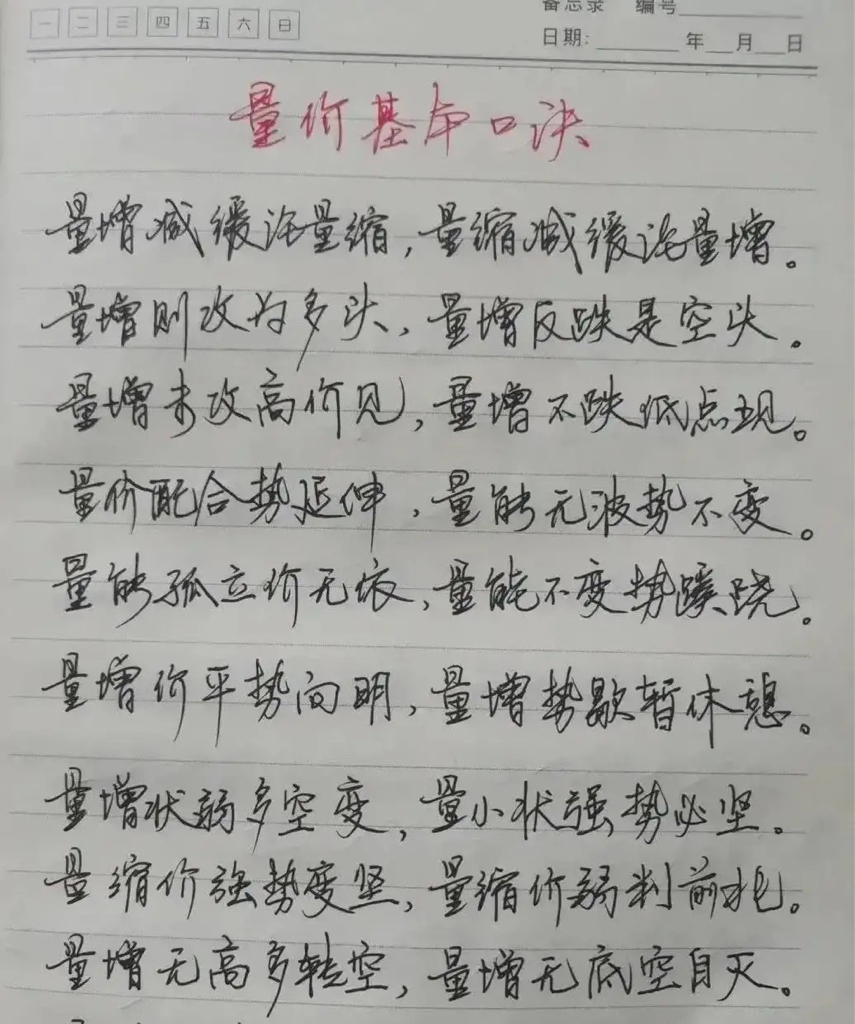 一 二 三 四 五 六 日
备忘录 编号
日期: 年 月 日
量价基本口诀
量增减缓注量缩,量缩减缓注量增。
量增则改为多头,量增反跌是空头。
量增未改高价见,量增不跌低点现。
量价配合势延伸,量能无波势不变。
量能孤立价无依,量能不变势蹊跷。
量增价平势向明,量增势歇暂休憩。
量增状弱多空变,量小状强势必坚。
量缩价强势变坚,量缩价弱判前兆。
量增无高多转空,量增无底空自灭。